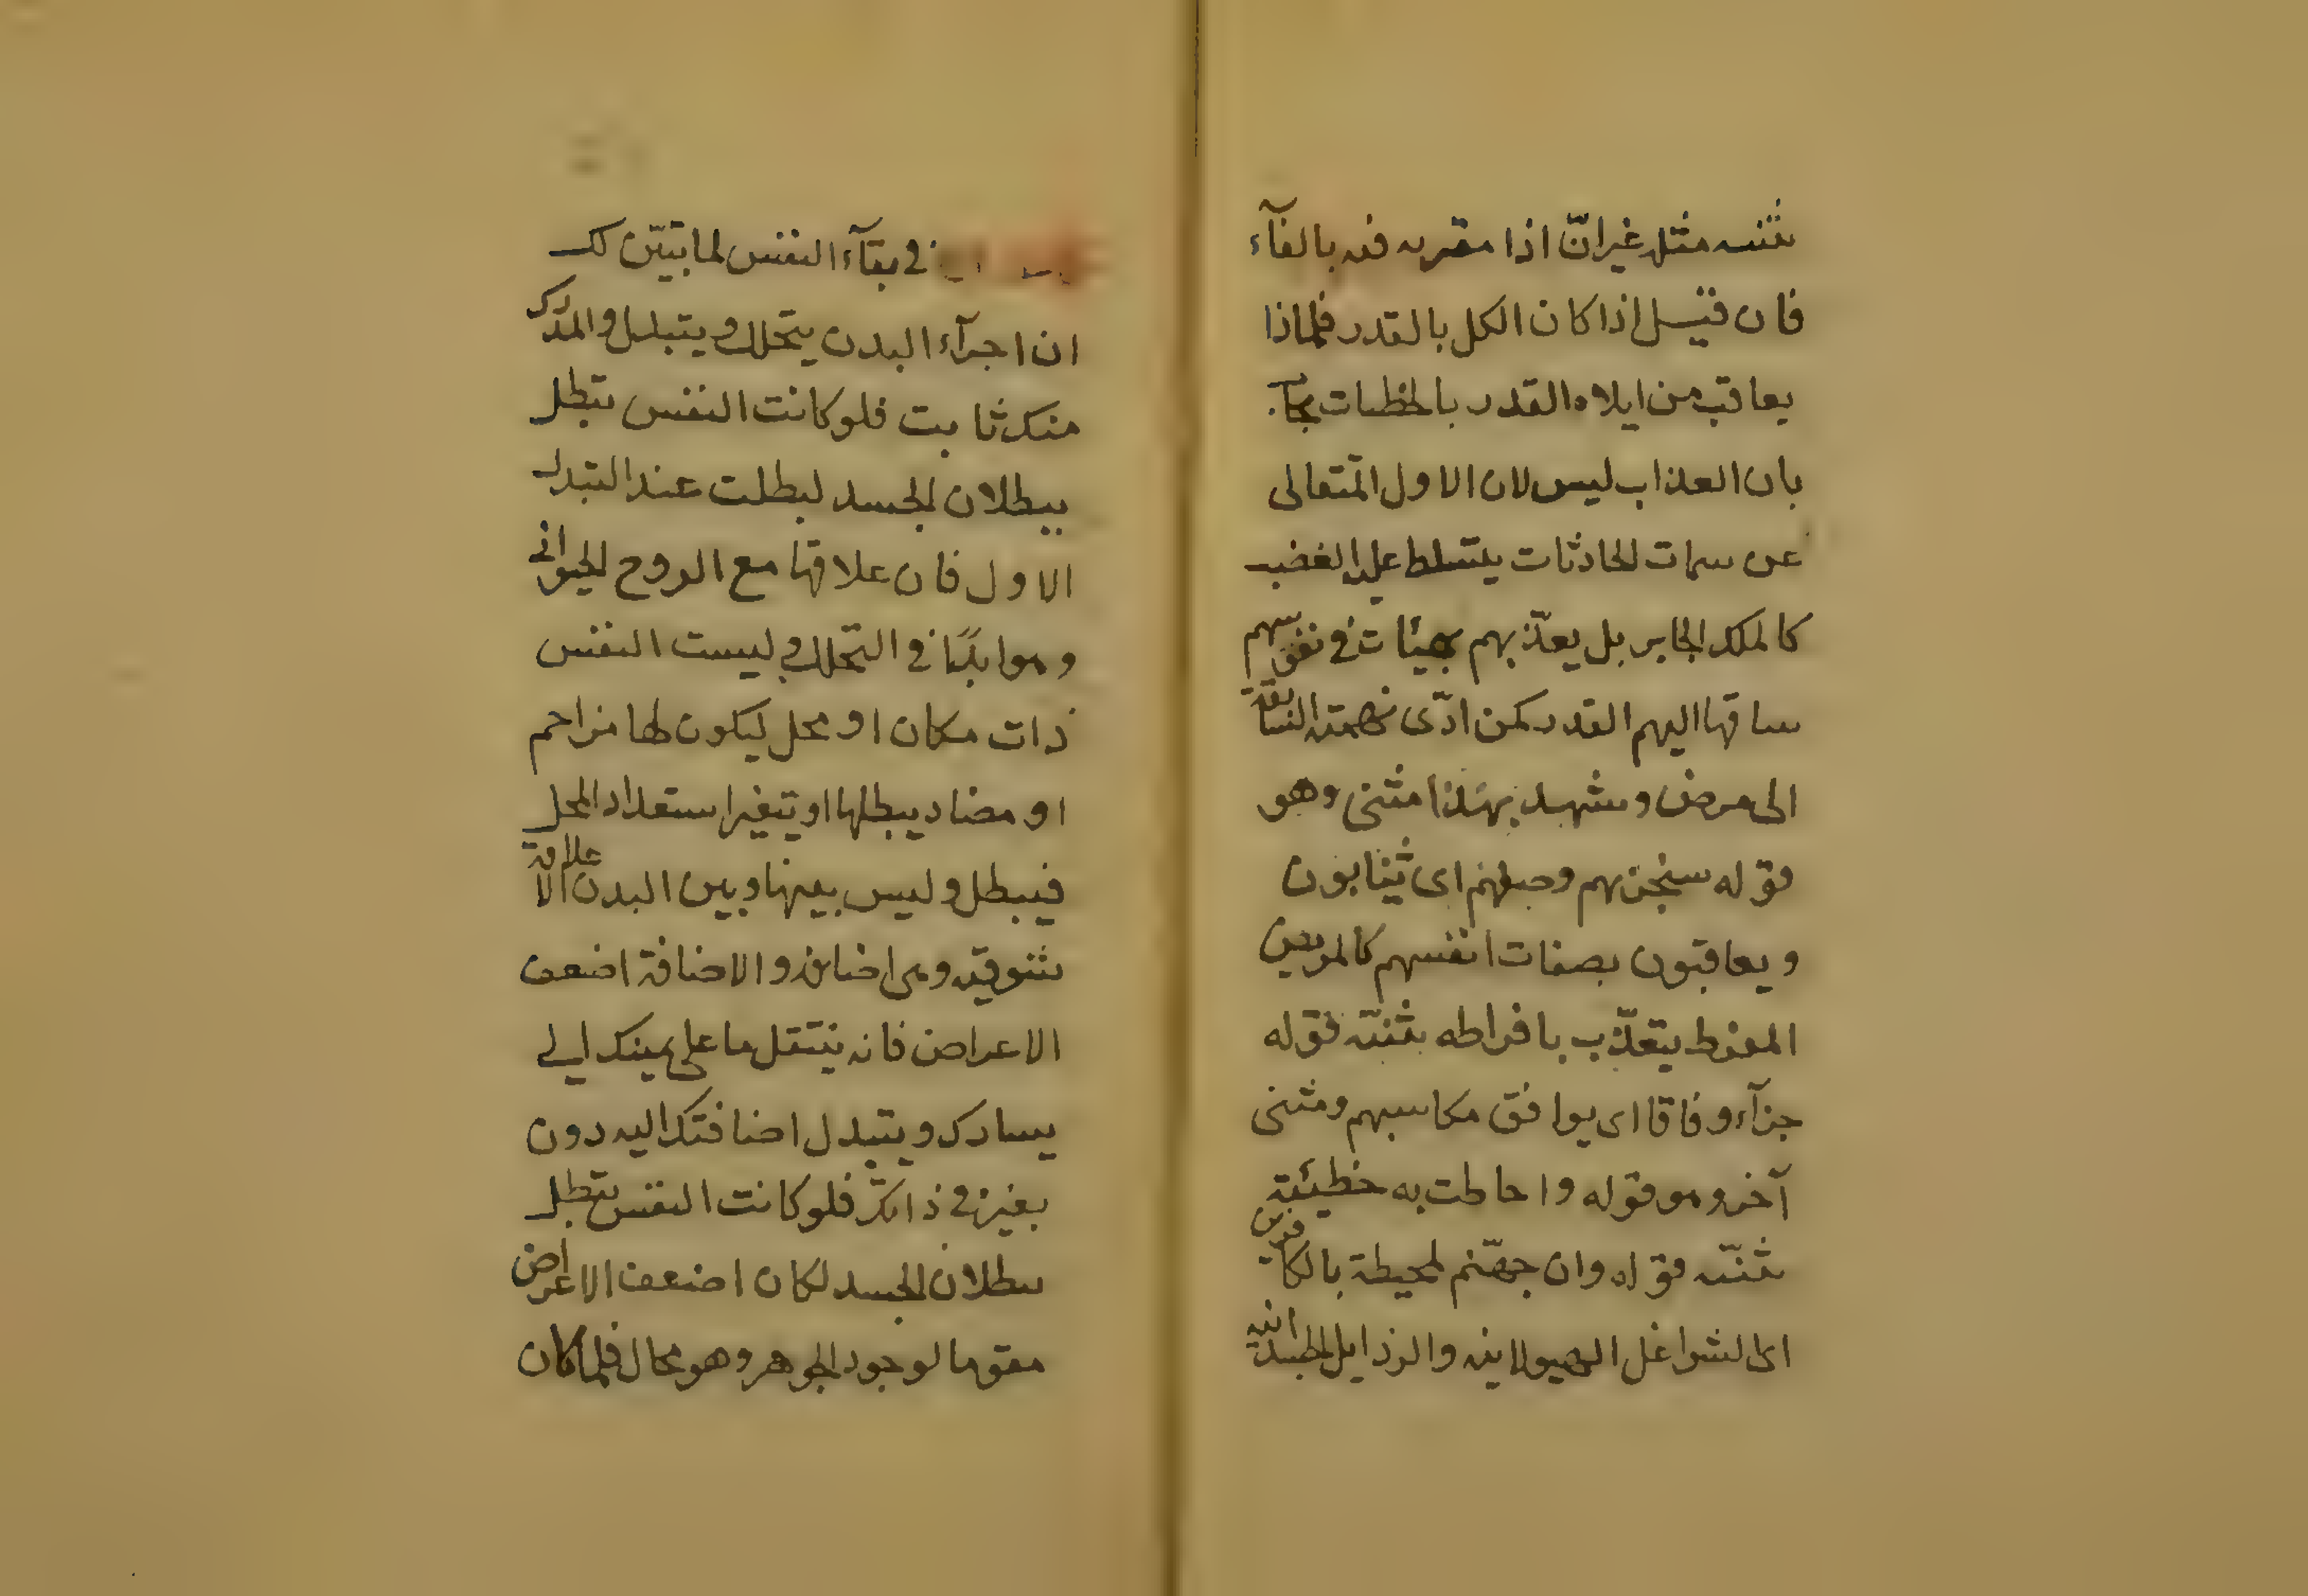 مثنيه مثله غير انّ اذا مقتربه فيه بالفآء
فان قيل اذا كان الكل بالقدر فلماذا
يعاقب من ابلاه القدر بالخطيات يجاب
بان العذاب ليس لان الاول المتعالى
عن سمات الحادثات يتسلط عليه الغضب
كالملك الجابر بل يعذّبهم بهيئات فى نفوسهم
ساقها اليهم القدر كمن ادّى نهمته السابقة
الى مرض ويشهد بهذا مثنى وهو
قوله سيجزيهم وصفهم اى يثابون
ويعاقبون بصفات انفسهم كالمريض
المفرط يتعذّب بافراطه مثنيه قوله
جزآء وفاقا اى يوافق مكاسبهم ومثنى
آخر وهو قوله واحاطت به خطيئته
مثنيه قوله وان جهنّم لمحيطة بالكافرين
اى الشواغل الهيولانيه والرذايل الجسدانيه
فى بقآء النفس لما تبيّن لك
ان اجزآء البدن يتحلل ويتبدل والمدرك
منك ثابت فلو كانت النفس تبطل
ببطلان الجسد لبطلت عند التبدل
الاول فان علاقتها مع الروح الحيوانى
وهو ابدًا فى التحلل وليست النفس
ذات مكان او محل ليكون لها مزاحم
او مضاد يبطلها او يتغير استعداد المحل
فيبطل وليس بينها وبين البدن الا علاقة
شوقيه وهى اضافة والاضافة اضعف
الاعراض فانه ينتقل ما على يمينك الى
يسارك ويتبدل اضافتك اليه دون
تغير فى ذاتك فلو كانت النفس تبطل
ببطلان الجسد لكان اضعف الاعراض
مقوما لوجود الجوهر وهو محال فلما كان